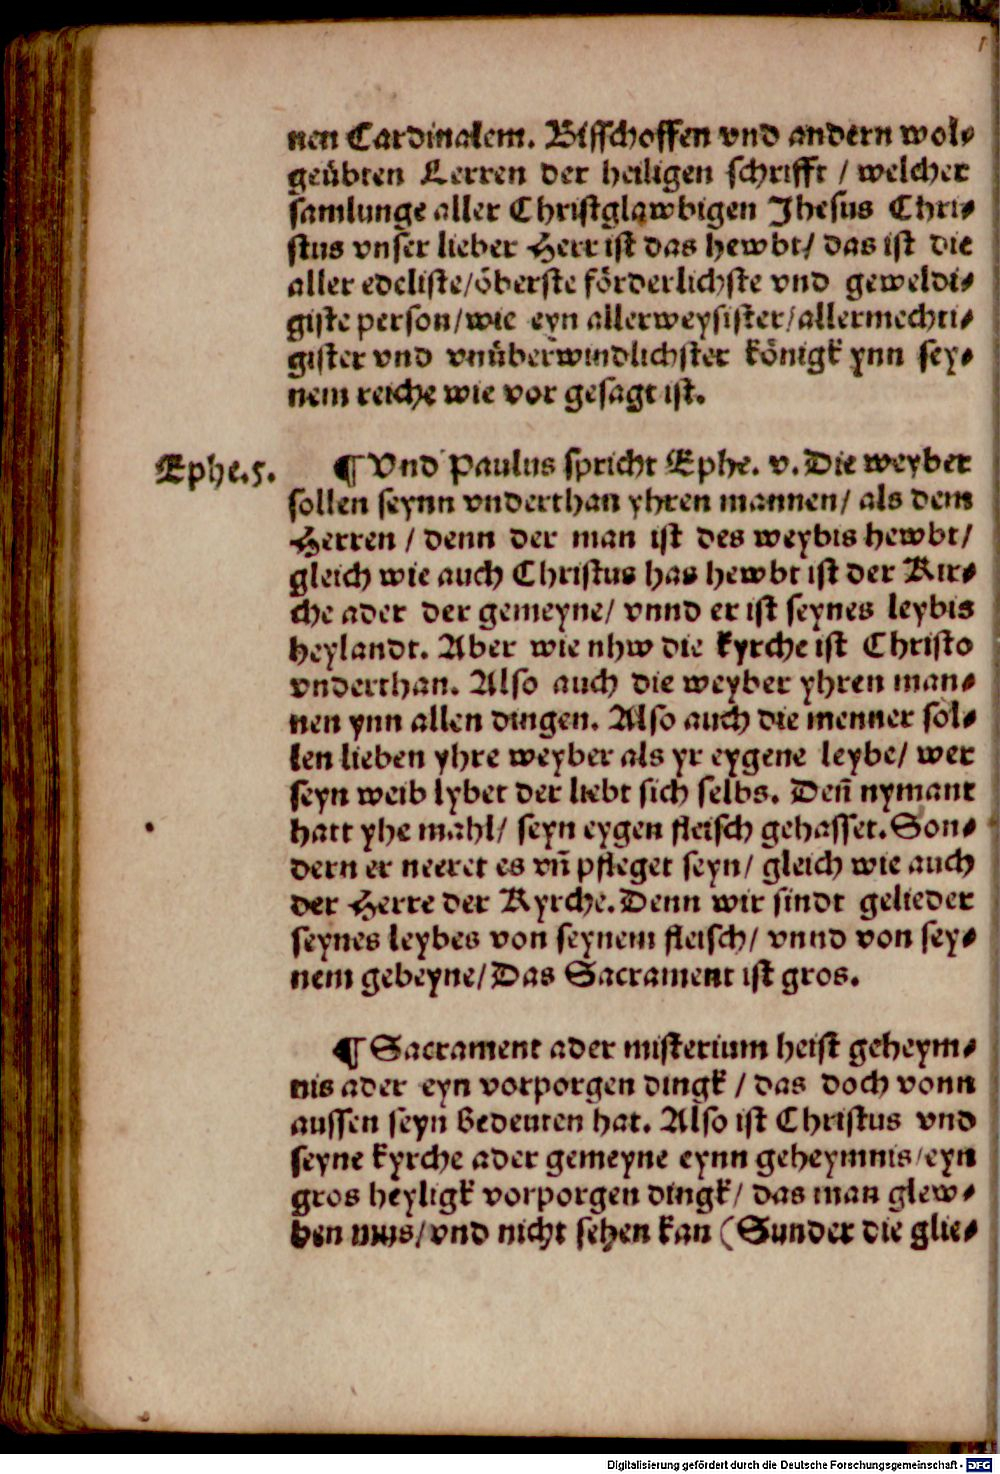 nen Cardinalem. Bisschoffen vnd andern wol⸗
geübten Lerren der heiligen schrifft / welcher
samlunge aller Christglawbigen Jhesus Chri⸗
stus vnser lieber Herr ist das hewbt/ das ist die
aller edeliste/öberste förderlichste vnd geweldi⸗
giste person/wie eyn allerweysister/allermechti⸗
gister vnd vnüberwindlichster königk ynn sey⸗
nem reiche wie vor gesagt ist.
Ephe.5.
¶ Vnd Paulus spricht Ephe. v. Die weyber
sollen seynn vnderthan yhren mannen/ als dem
Herren / denn der man ist des weybis hewbt/
gleich wie auch Christus has hewbt ist der Kir⸗
che ader der gemeyne/ vnnd er ist seynes leybis
heylandt. Aber wie nhw die kyrche ist Christo
vnderthan. Also auch die weyber yhren man⸗
nen ynn allen dingen. Also auch die menner sol⸗
len lieben yhre weyber als yr eygene leybe/ wer
seyn weib lybet der liebt sich selbs. Deñ nymant
hatt yhe mahl/ seyn eygen fleisch gehasset. Son⸗
dern er neeret es vñ pfleget seyn/ gleich wie auch
der Herre der Kyrche. Denn wir sindt gelieder
seynes leybes von seynem fleisch/ vnnd von sey⸗
nem gebeyne/Das Sacrament ist gros.
¶ Sacrament ader misterium heist geheym⸗
nis ader eyn vorporgen dingk / das doch vonn
aussen seyn bedeuten hat. Also ist Christus vnd
seyne kyrche ader gemeyne eynn geheymnis/eyn
gros heyligk vorporgen dingk/ das man glew⸗
ben mus/vnd nicht sehen kan (Sunder die glie⸗
Digitalisierung gefördert durch die Deutsche Forschungsgemeinschaft - DFG